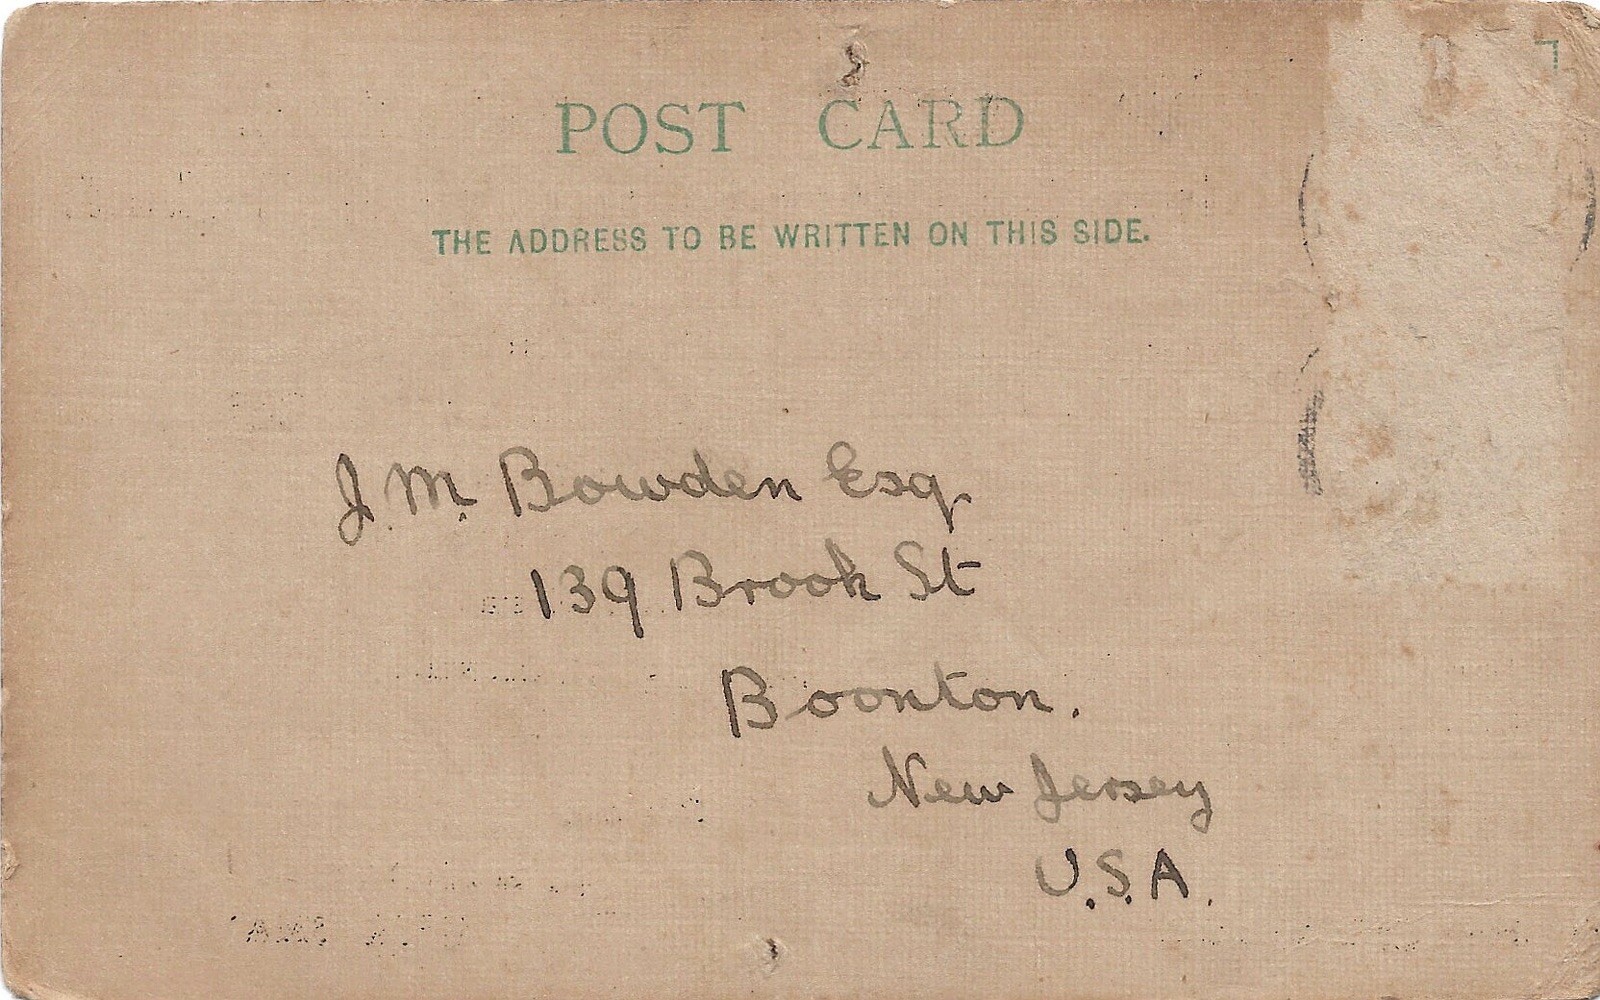 POST CARD
THE ADDRESS TO BE WRITTEN ON THIS SIDE.
J. M. Bowden Esq
139 Brook St
Boonton.
New Jersey
U.S.A.